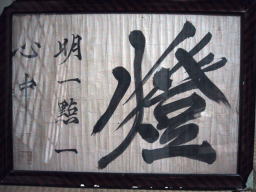 燈
明一點一
心中